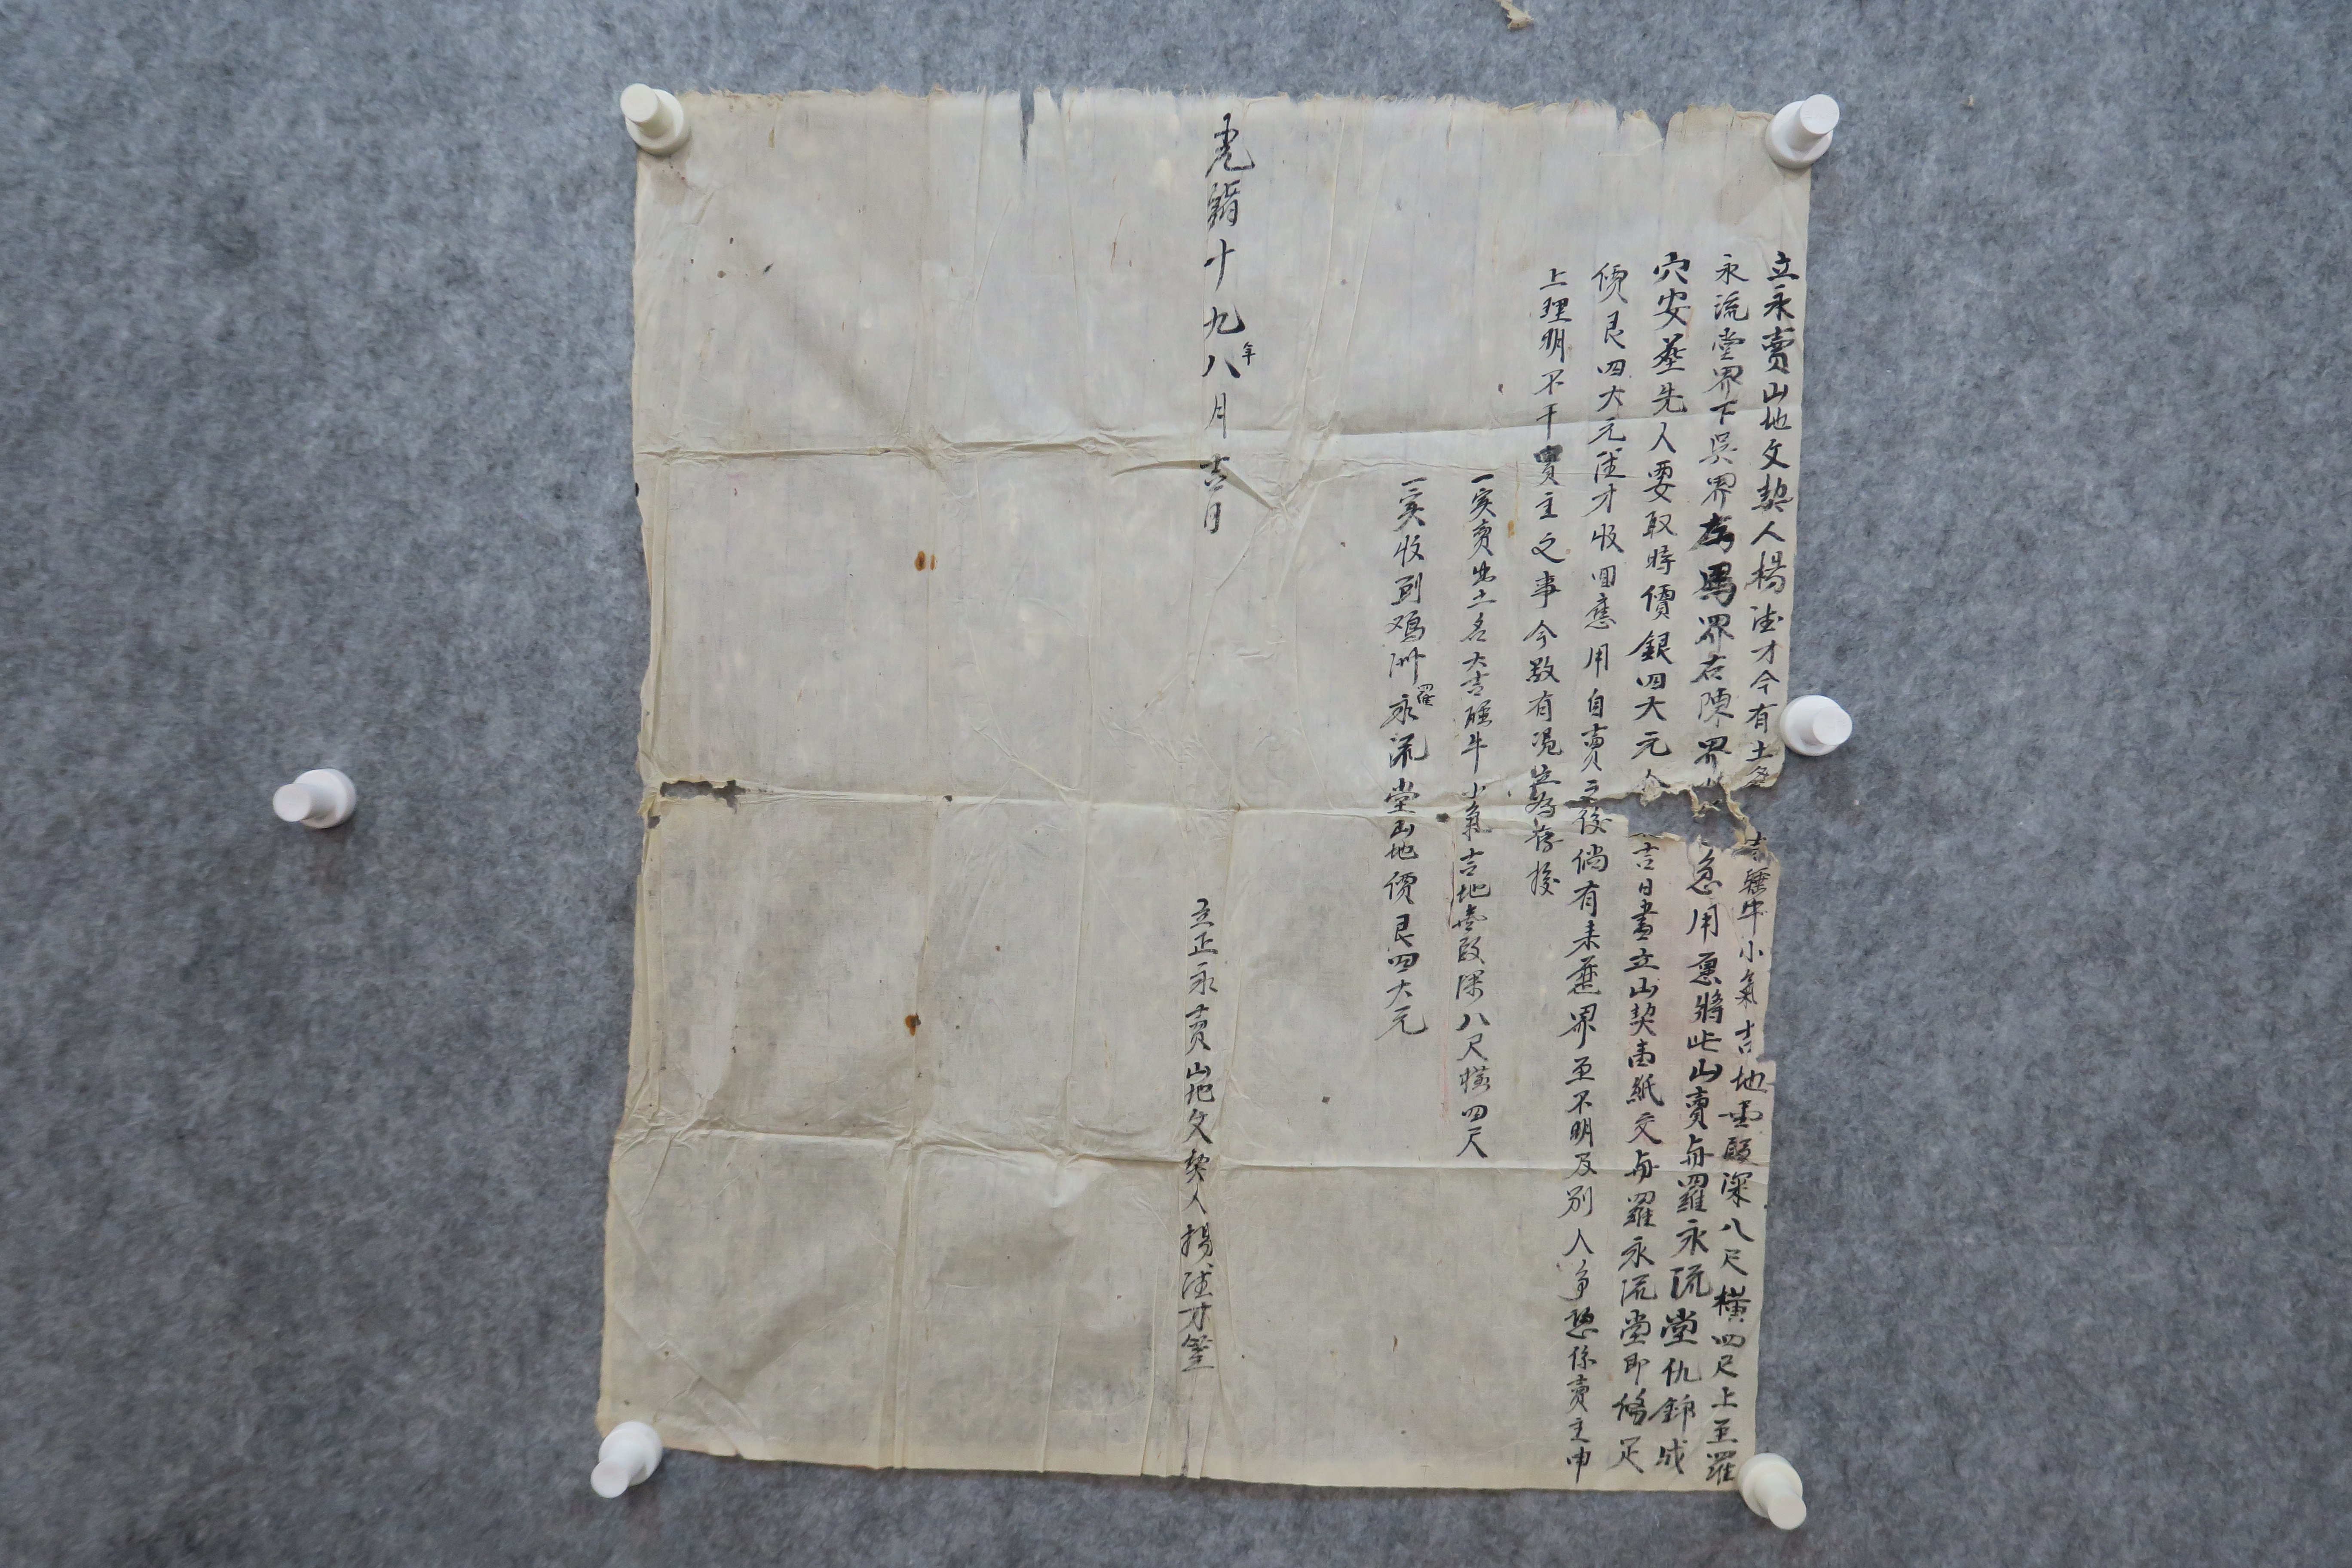 立永賣山地文契人楊達才今有土名 吉 睡牛小氣吉地壹段深八尺橫四尺上至羅
永流堂界下吳界左馬界右陳界 急用愿將此山賣與羅永流堂仇錦成
穴安葬先人要取時價銀四大元 吉日書立山契壹紙交與羅永流堂即俻足
價艮四大元達才收回應用自賣之後倘有未葬界至不明及別人爭恐係賣主申
上理明不干買主之事今欲有憑立為存後
一实賣出土名大吉睡牛小氣吉地壹段深八尺橫四尺
一实收到鳮洲羅永流堂山地價艮四大元
光緒十九年八月吉日
立正永賣山地文契人楊達才筆